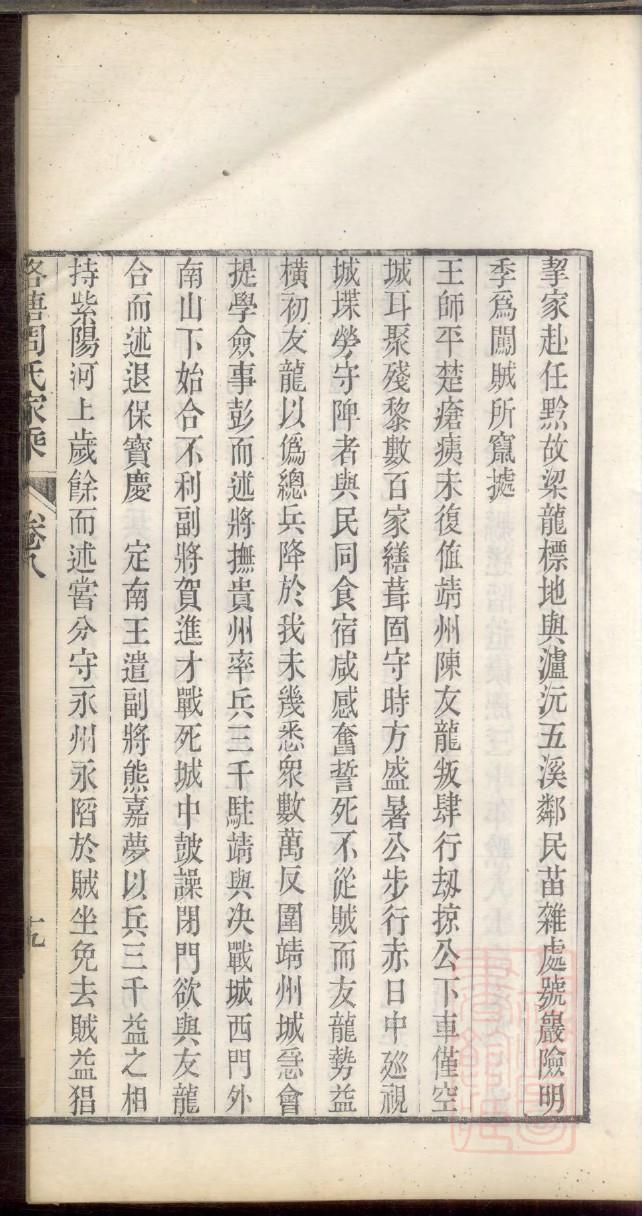 挈家赴任黔故梁龍標地與瀘沅五溪鄰民苗雜處號巖險明
季爲闖賊所竄㨿
王師平楚瘡痍未復值靖州陳友龍叛肆行刼掠公下車僅空
城耳聚殘黎數百家繕葺固守時方盛暑公步行赤日中廵視
城堞勞守陴者與民同食宿咸感奮誓死不從賊而友龍勢益
橫初友龍以僞總兵降於我未幾悉衆數萬反圍靖州城急會
提學僉事彭而述將撫貴州率兵三千駐靖與决戰城西門外
南山下始合不利副將賀進才戰死城中鼓譟閉門欲與友龍
合而述退保寶慶　定南王遣副將熊嘉夢以兵三千益之相
持紫陽河上歲餘而述嘗分守永州永䧟於賊坐免去賊益猖
洛塘周氏家乘　卷八　十九